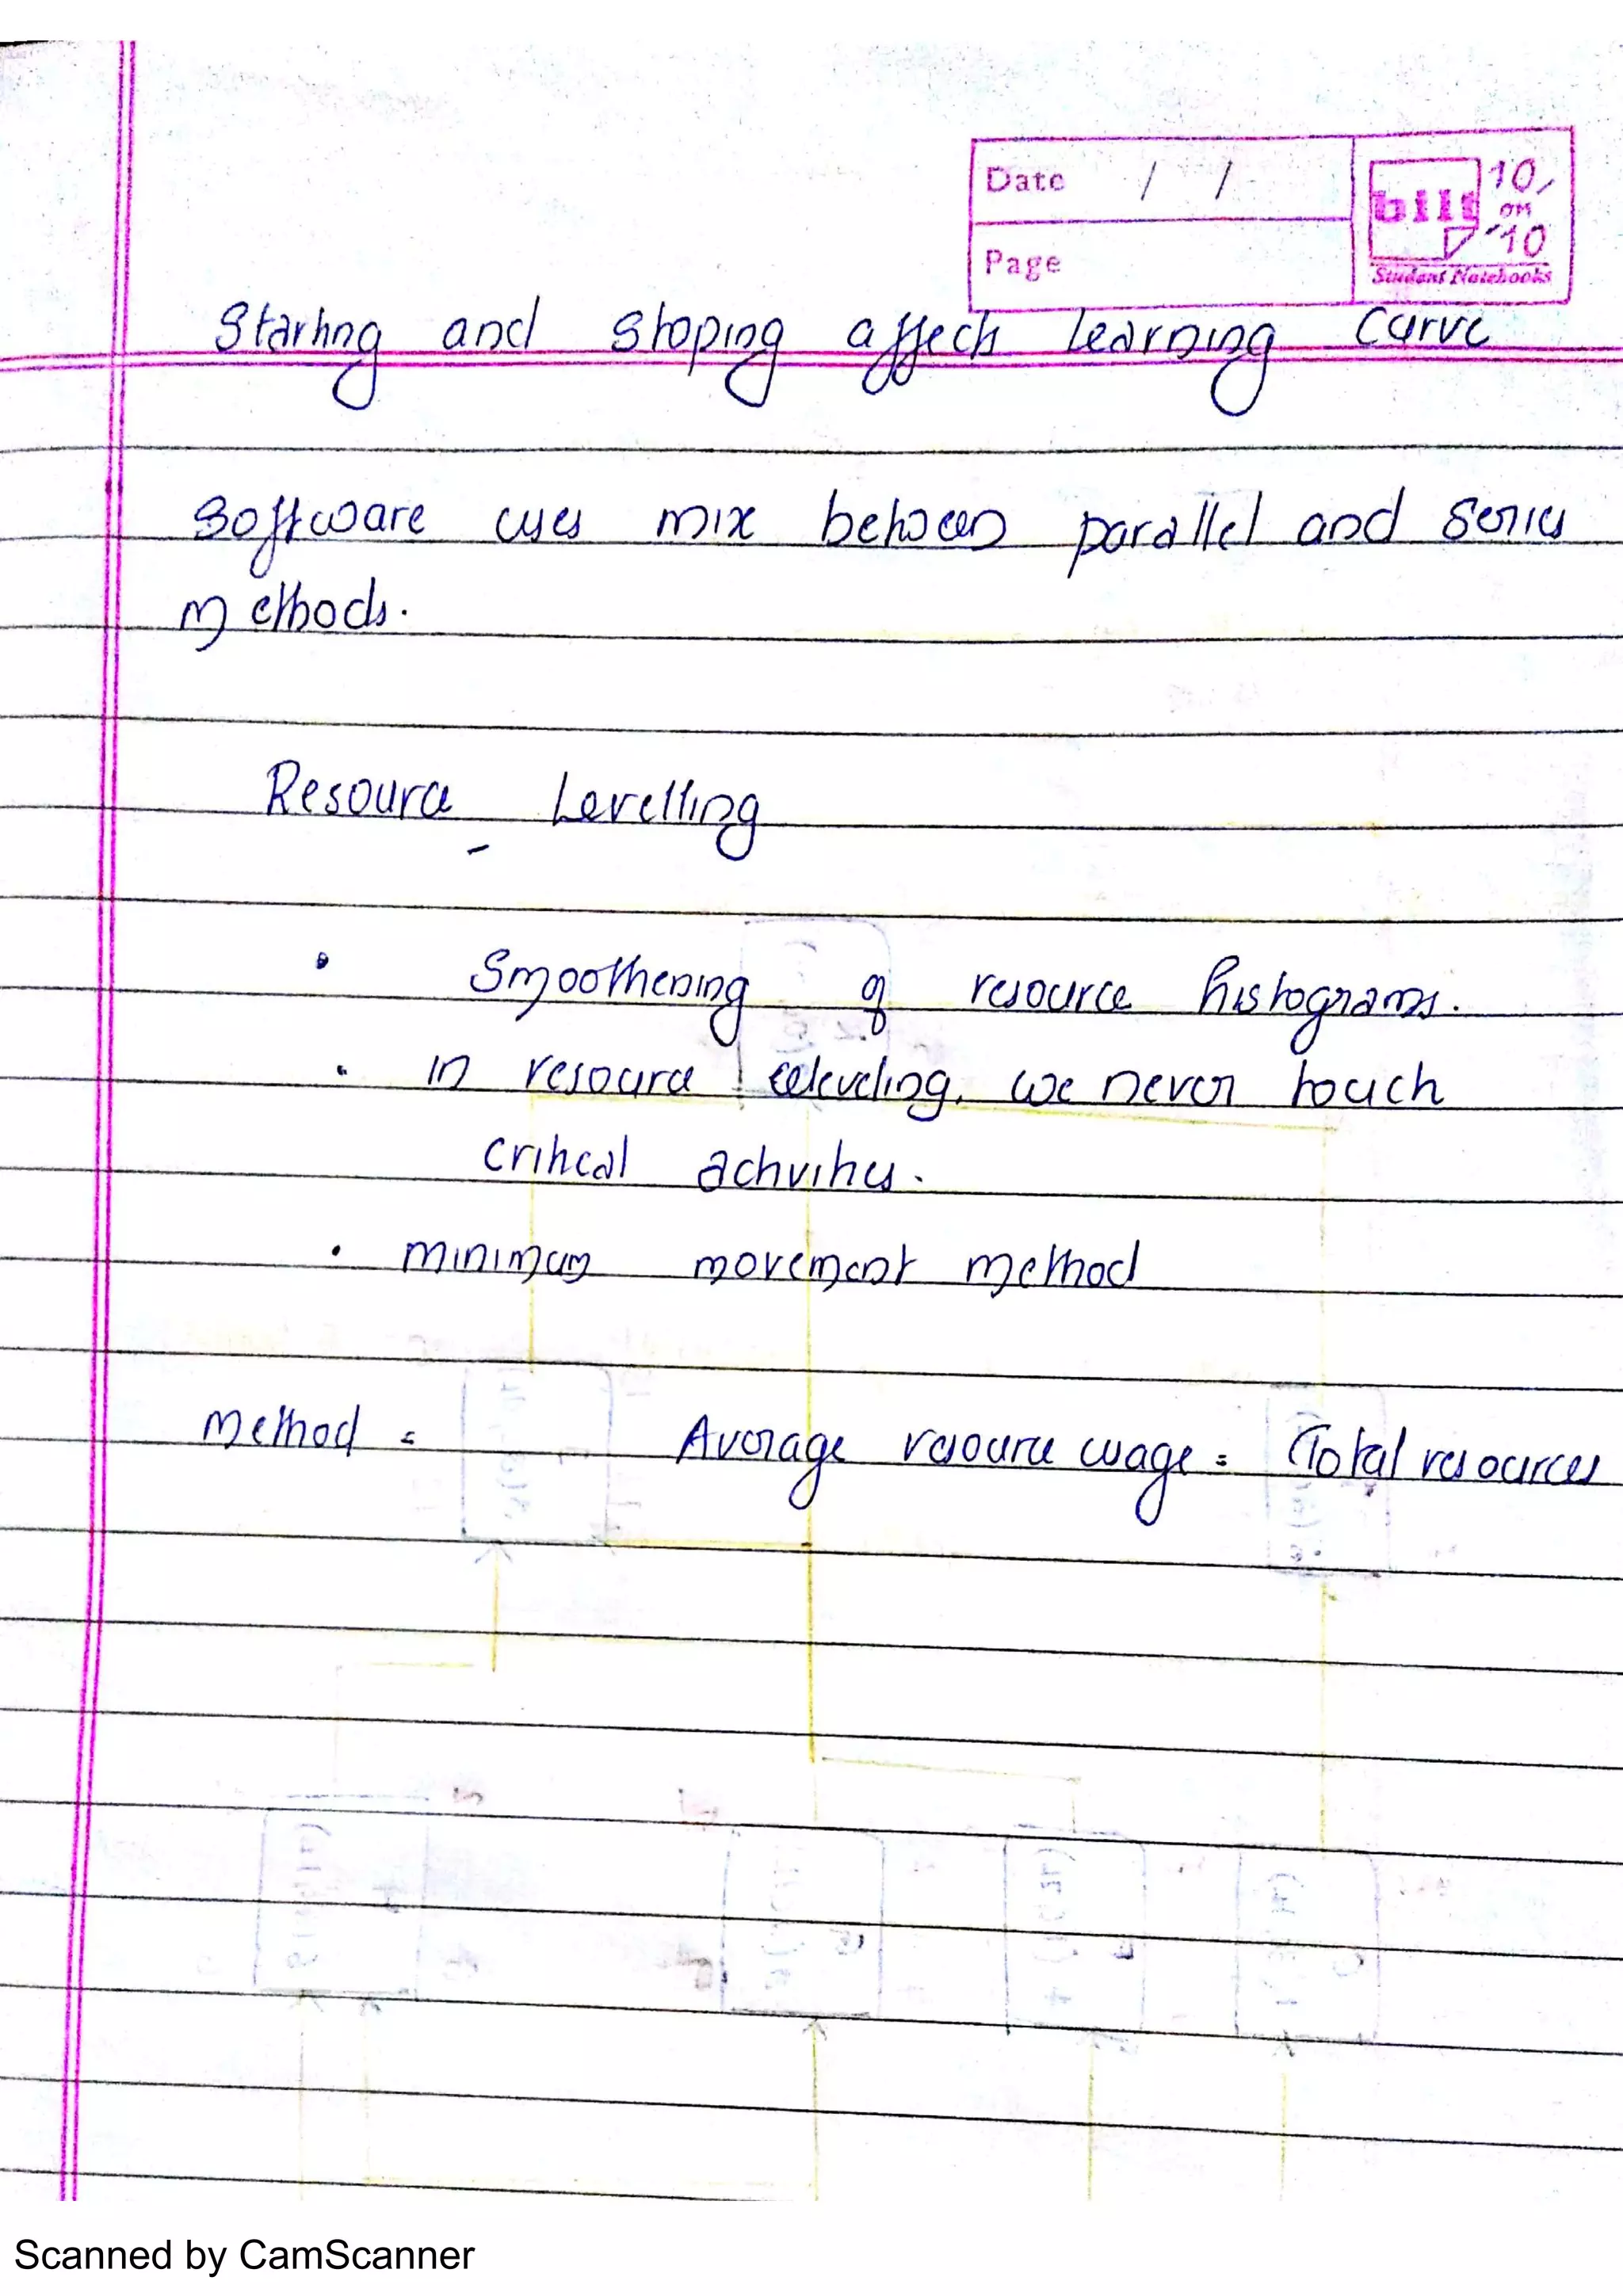 Date / /
Page
bilt 10 on 10
Student Notebooks
Starting and stoping affects learning curve
Software uses mix between parallel and series
methods.
Resource Levelling
• Smoothening of resource histograms.
• in resource leveling, we never touch
critical activities.
• minimum movement method
method = Average resource usage = Total resources
Scanned by CamScanner